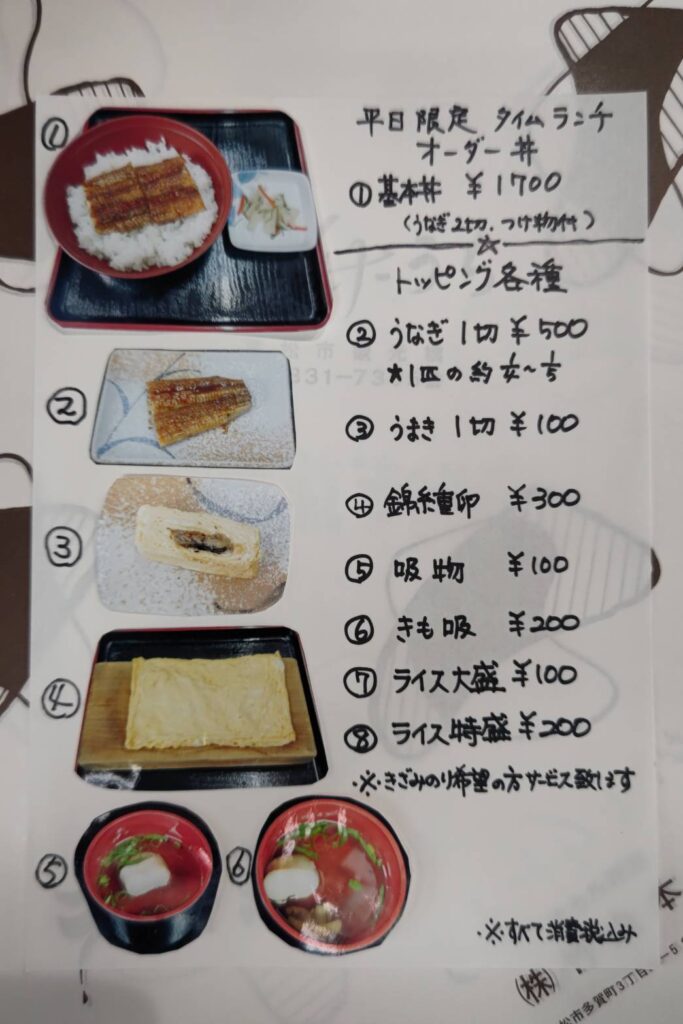 平日限定 タイムランチ
オーダー丼
① 基本丼 ¥1700
(うなぎ2切、つけ物付)
トッピング各種
② うなぎ 1切 ¥500
*1匹の約¼~⅕
③ うまき 1切 ¥100
④ 錦糸重卵 ¥300
⑤ 吸物 ¥100
⑥ きも吸 ¥200
⑦ ライス大盛 ¥100
⑧ ライス特盛 ¥200
※きざみのり希望の方サービス致します
※すべて消費税込み
①
②
③
④
⑤
⑥
市観光
831-73
(株)
松市多賀町3丁目